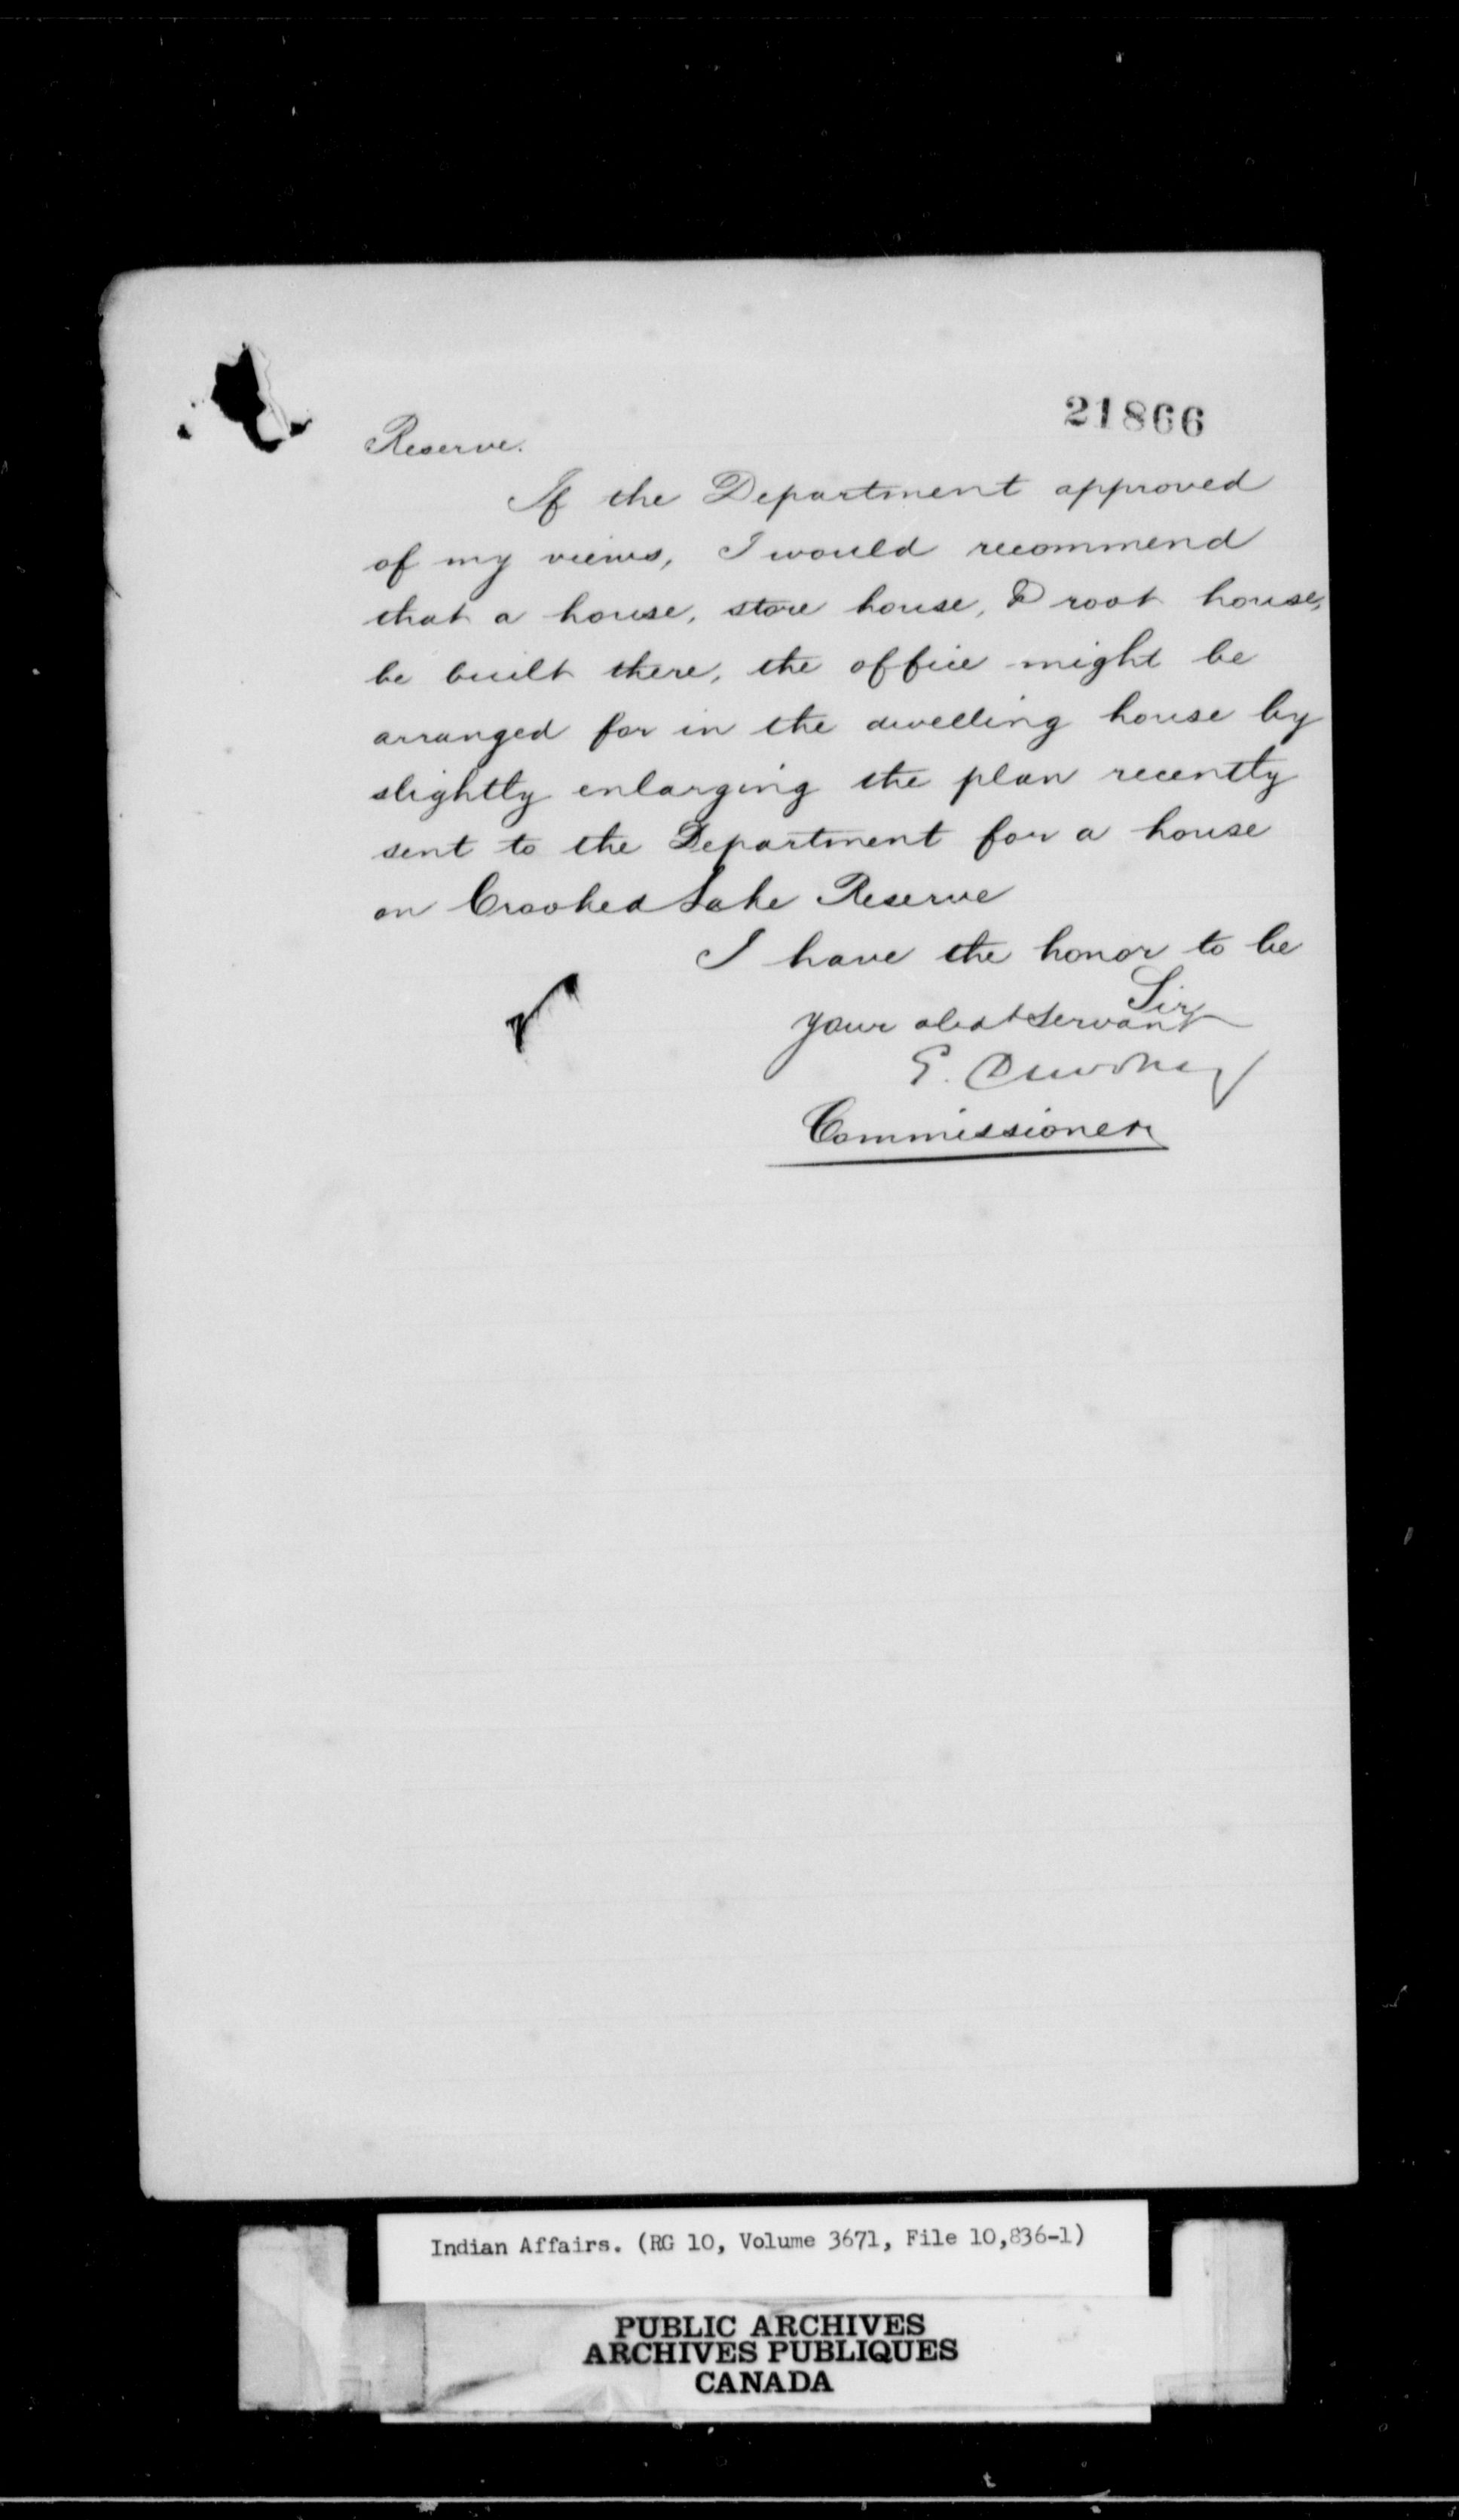 21866
Reserve.
If the Department approved
of my views, I would recommend
that a house, store house, & root house,
be built there, the office might be
arranged for in the dwelling house by
slightly enlarging the plan recently
sent to the Department for a house
on Crooked Lake Reserve
I have the honor to be
Sir
your obedt servant
E. Dewdney
Commissioner
Indian Affairs. (RG 10, Volume 3671, File 10,836-1)
PUBLIC ARCHIVES
ARCHIVES PUBLIQUES
CANADA